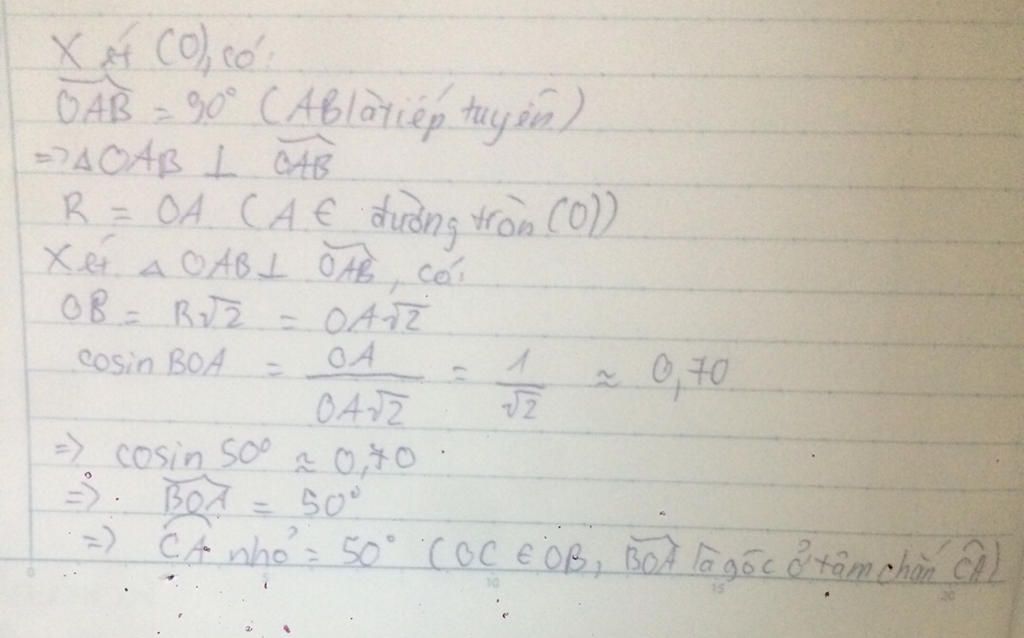 Xét (O), có:
OAB = 90° (AB là tiếp tuyến)
=> △OAB ⊥ OAB
R = OA (A ∈ đường tròn (O))
Xét △OAB ⊥ OAB, có:
OB = R√2 = OA√2
cosin BOA = OA / OA√2 = 1/√2 ≈ 0,70
=> cosin 50° ≈ 0,70
=> BOA = 50°
=> CA nhỏ = 50° (OC ∈ OB, BOA là góc ở tâm chắn CA)
0 5 10 15 20